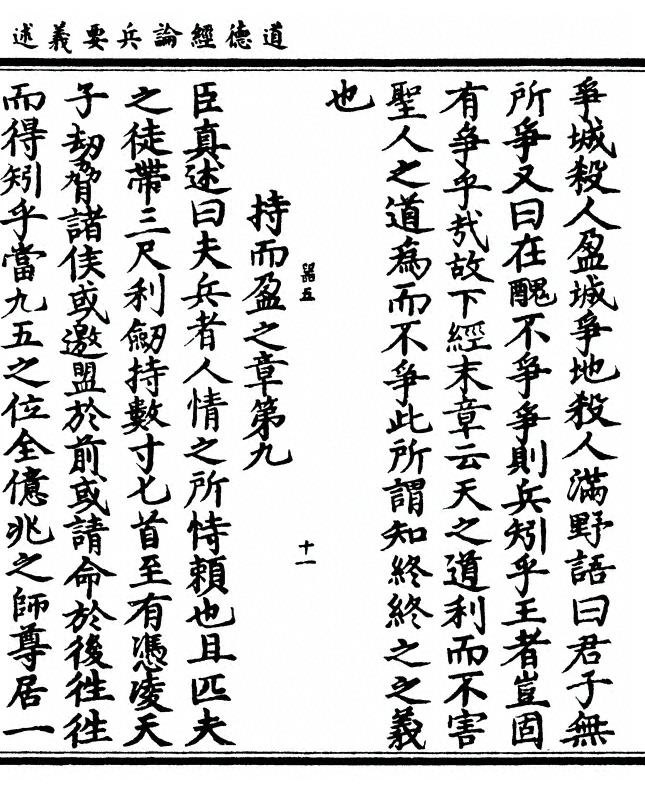 道德經論兵要義述
爭城殺人盈城爭地殺人滿野語曰君子無
所爭又曰在醜不爭爭則兵矧乎王者豈固
有爭乎㦲故下經末章云天之道利而不害
聖人之道為而不爭此所謂知終終之之義
也
器五
十一
持而盈之章第九
臣真述曰夫兵者人情之所恃賴也且匹夫
之徒帶三尺利劒持數寸匕首至有憑凌天
子劫脅諸侯或邀盟於前或請命於後徃徃
而得矧乎當九五之位全億兆之師尊居一